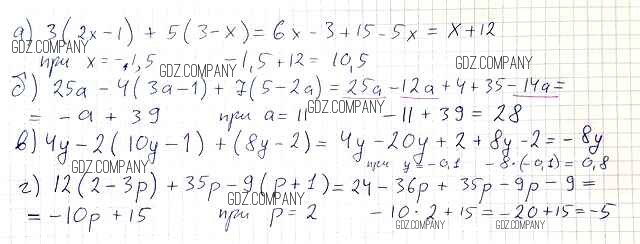 а) 3(2x-1) + 5(3-x) = 6x - 3 + 15 - 5x = x + 12
GDZ.COMPANY
при x = -1,5 -1,5 + 12 = 10,5
GDZ.COMPANY
GDZ.COMPANY
б) 25a - 4(3a-1) + 7(5-2a) = 25a - 12a + 4 + 35 - 14a =
= -a + 39 при a = 11 -11 + 39 = 28
GDZ.COMPANY
в) 4y - 2(10y-1) + (8y-2) = 4y - 20y + 2 + 8y - 2 = -8y
GDZ.COMPANY
при y = -0,1 -8·(-0,1) = 0,8
г) 12(2-3p) + 35p - 9(p+1) = 24 - 36p + 35p - 9p - 9 =
GDZ.COMPANY
= -10p + 15 при p = 2 -10·2 + 15 = -20 + 15 = -5
GDZ.COMPANY GDZ.COMPANY